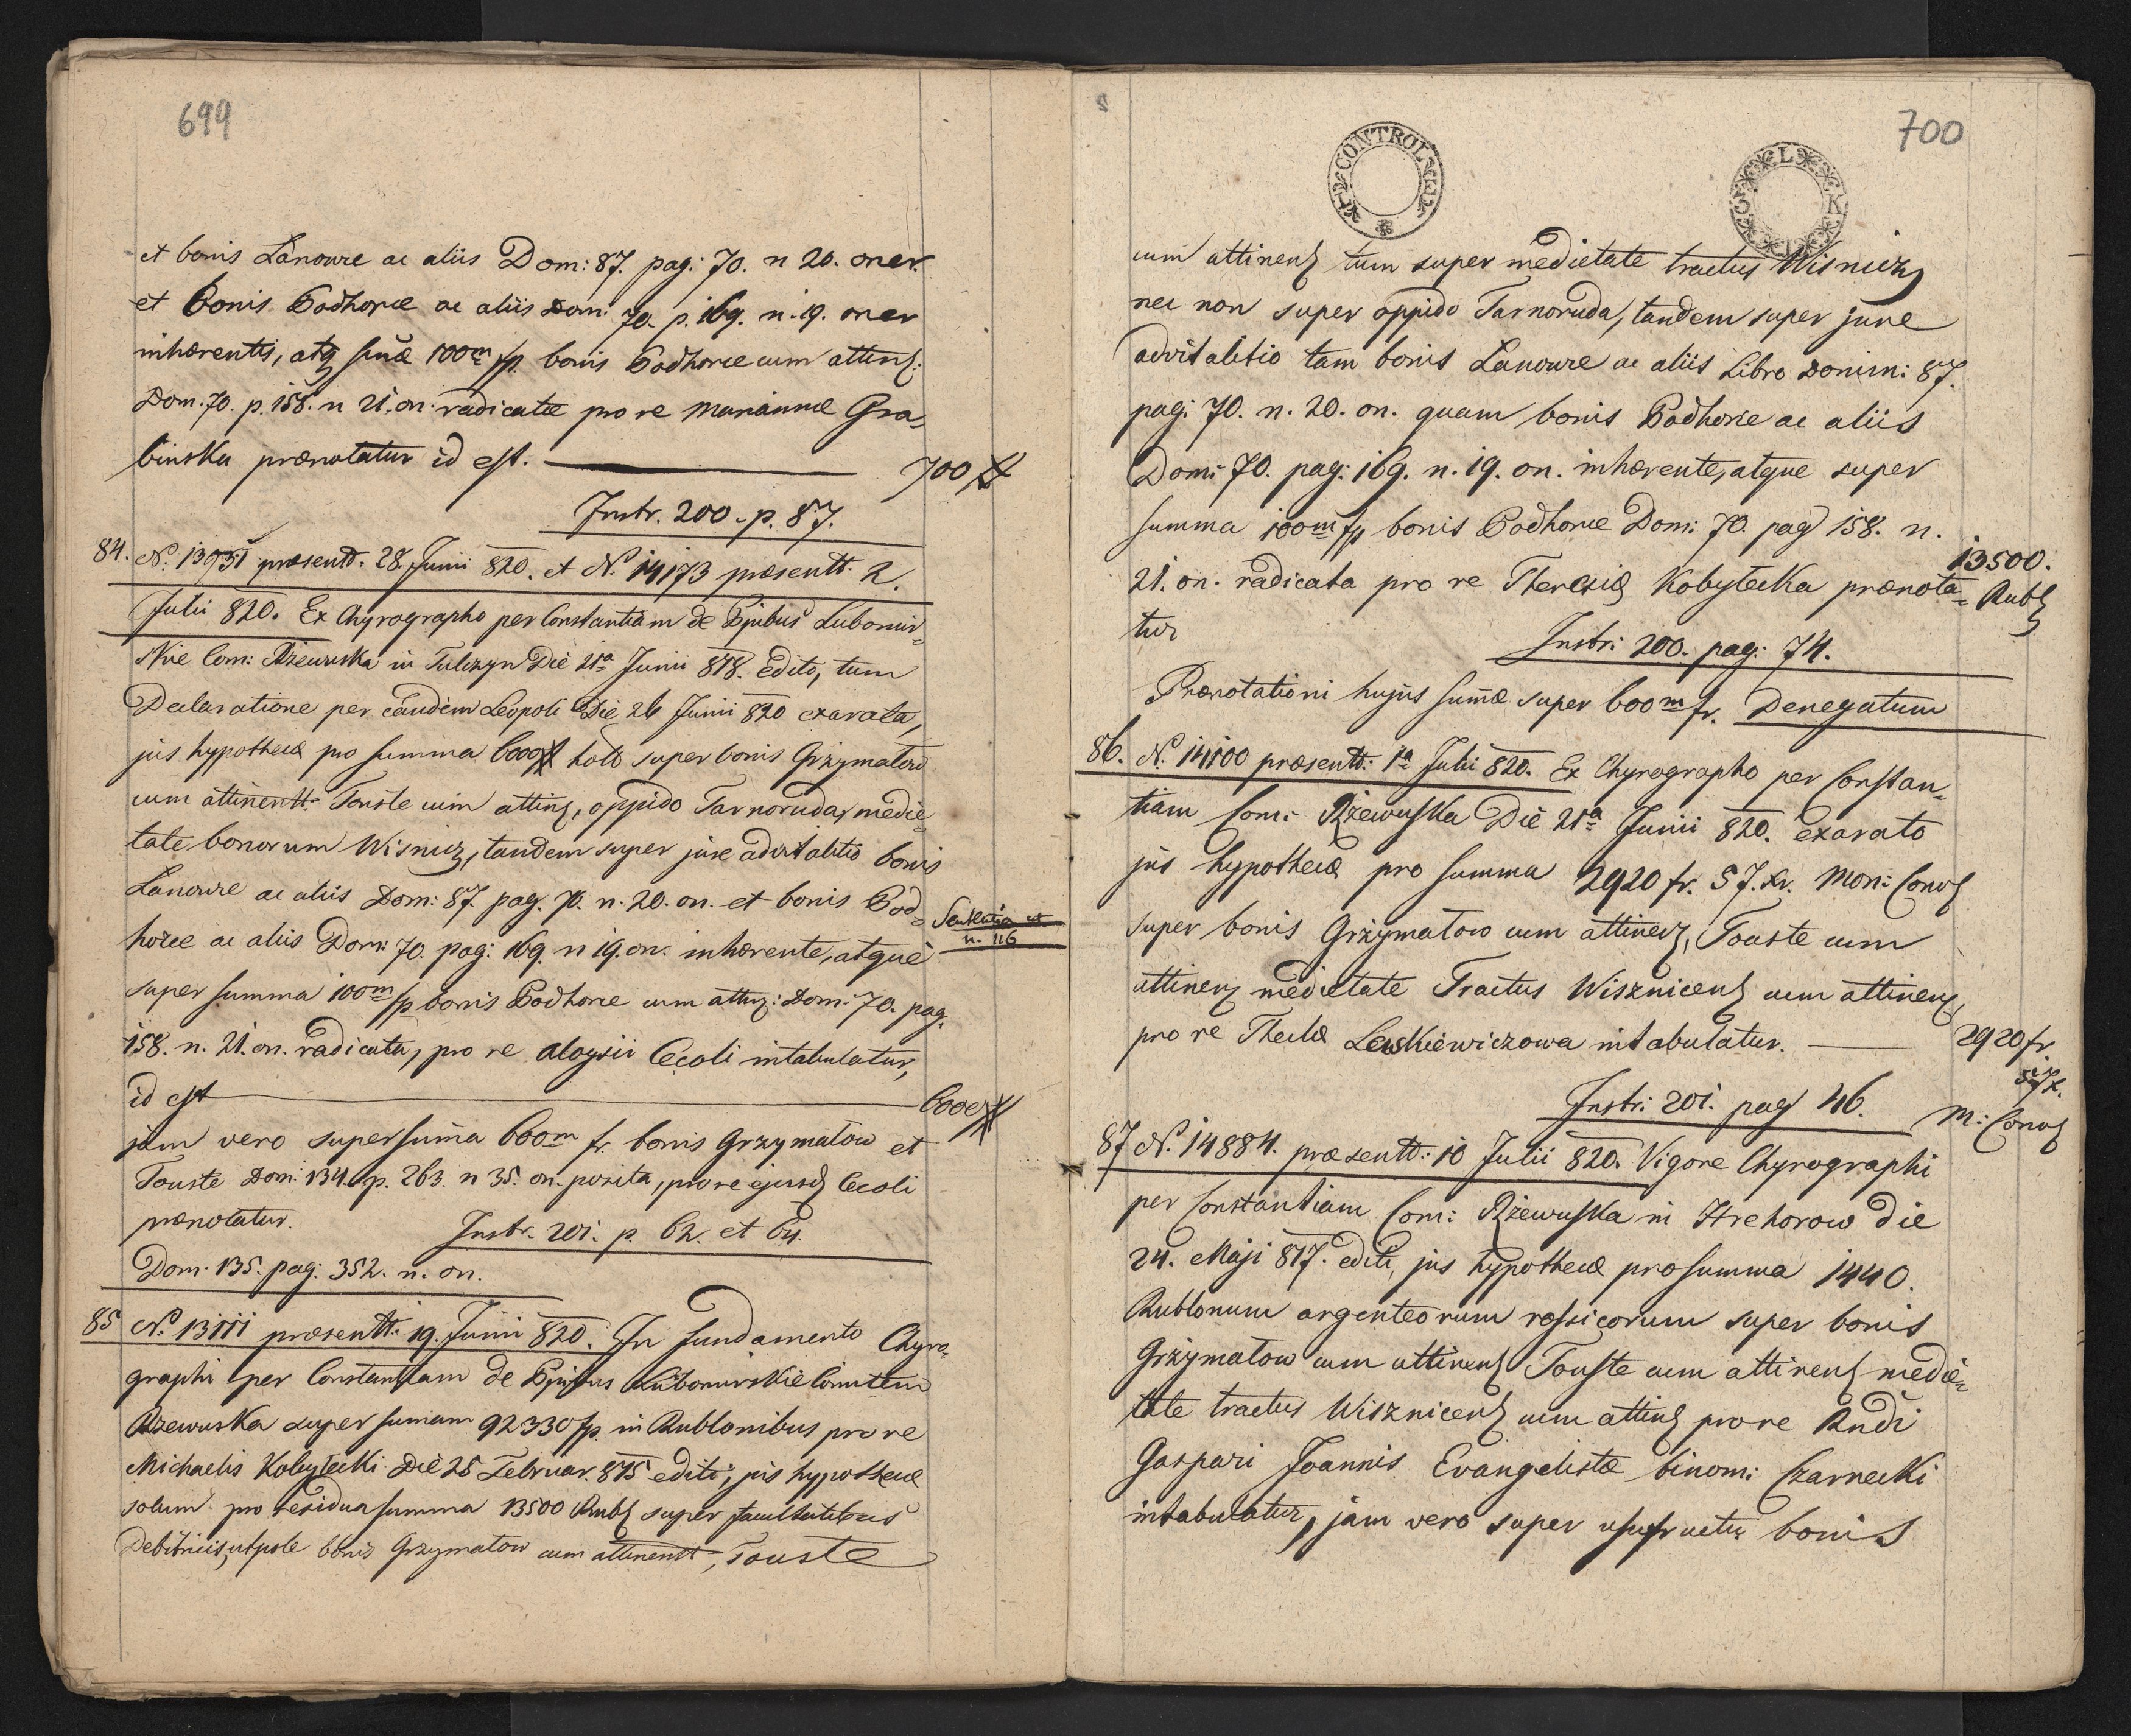 699
et bonis Lanowce ac aliis Dom: 87. pag: 70. n 20. oner.
et bonis Podhorce ac aliis Dom: 70. p. 169. n. 19. oner
inhærentis, atq summæ 100m fp. bonis Podhorce cum attin:
Dom. 70. p. 158. n 21. on. radicatæ pro re Mariannæ Gra=
binska prænotatur id est. 700 #
Instr. 200. p. 87.
84. N. 13931 præsentt. 28. Junii 820. et N. 14173 præsentt. 2.
Julii 820. Ex Chyrographo per Constantiam de Ppibus Lubomir=
skie Com: Rzewuska in Tulczyn Die 21a Junii 818. edito, tum
Declaratione per eandem Leopoli Die 26 Junii 820 exarata,
jus hypothecæ pro summa 6000 # holl super bonis Grzymatow
cum attinentt. Touste cum attin, oppido Tarnoruda, medie=
tate bonorum Wisnicz, tandem super jure advitalitio bonis
Lanowce ac aliis Dom: 87. pag. 70. n. 20. on. et bonis Pod=
horce ac aliis Dom: 70. pag: 169. n 19. on. inhærente, atque
Sententia
n. 116
super summa 100m fp. bonis Podhorce cum attin: Dom: 70. pag.
158. n. 21. on. radicata, pro re Aloysii Cecoli intabulatur,
id est 6000 #
jam vero super summa 600m fr. bonis Grzymatow et
Touste Dom: 134. p. 263. n 35. on. posita, pro re ejusd Cecoli
prænotatur. Instr. 201. p. 62. et 64.
Dom. 135. pag: 352. n. on.
85 N. 13111 præsentt. 19. Junii 820. In fundamento Chyro=
graphi per Constantiam de Ppibus Lubomirskie Comitem
Rzewuska super summam 92330 fp. in Rublonibus pro re
Michaelis Kobyłecki Die 25 Februar. 815 editi, jus hypothecæ
solum pro residua summa 13500 Rubl super facultatibus
Debitricis, utpote bonis Grzymatow cum attinentt, Touste
700
CONTROL
cum attinen tum super medietate tractus Wisnicz,
nec non super oppido Tarnoruda, tandem super jure
advitalitio tam bonis Lanowce ac aliis Libro Domin: 87.
pag: 70. n. 20. on. quam bonis Podhorce ac aliis
Dom: 70. pag: 169. n. 19. on. inhærente, atque super
summa 100m fp bonis Podhorce Dom: 70. pag 158. n.
21. on. radicata pro re Theresiæ Kobyłecka prænota=
13500. Rubl
tur
Instr: 200. pag: 74.
Prænotationi hujus summæ super 600m fr. Denegatum
86. N. 14100 præsentt. 1a Julii 820. Ex Chyrographo per Constan=
tiam Com: Rzewuska Die 21a Junii 820. exarato
jus hypothecæ pro summa 2920 fr. 57. xr. Mon: Conv
super bonis Grzymatow cum attinen, Touste cum
attinen medietate Tractus Wisznicen cum attinen,
pro re Theclæ Leskiewiczowa intabulatur. 2920 fr
57 x.
Instr: 201. pag 46. M: Conv
87 N. 14884. præsentt: 10 Julii 820. Vigore Chyrographi
per Constantiam Com: Rzewuska in Hrehorow die
24. Maji 817. editi, jus hypothecæ pro summa 1440.
Rublonum argenteorum rossicorum super bonis
Grzymatow cum attinen Touste cum attinen medie=
tate tractus Wisznicen cum attin pro re Rndi
Gaspari Joannis Evangelistæ binom: Czarnecki
intabulatur, jam vero super usufructu bonis